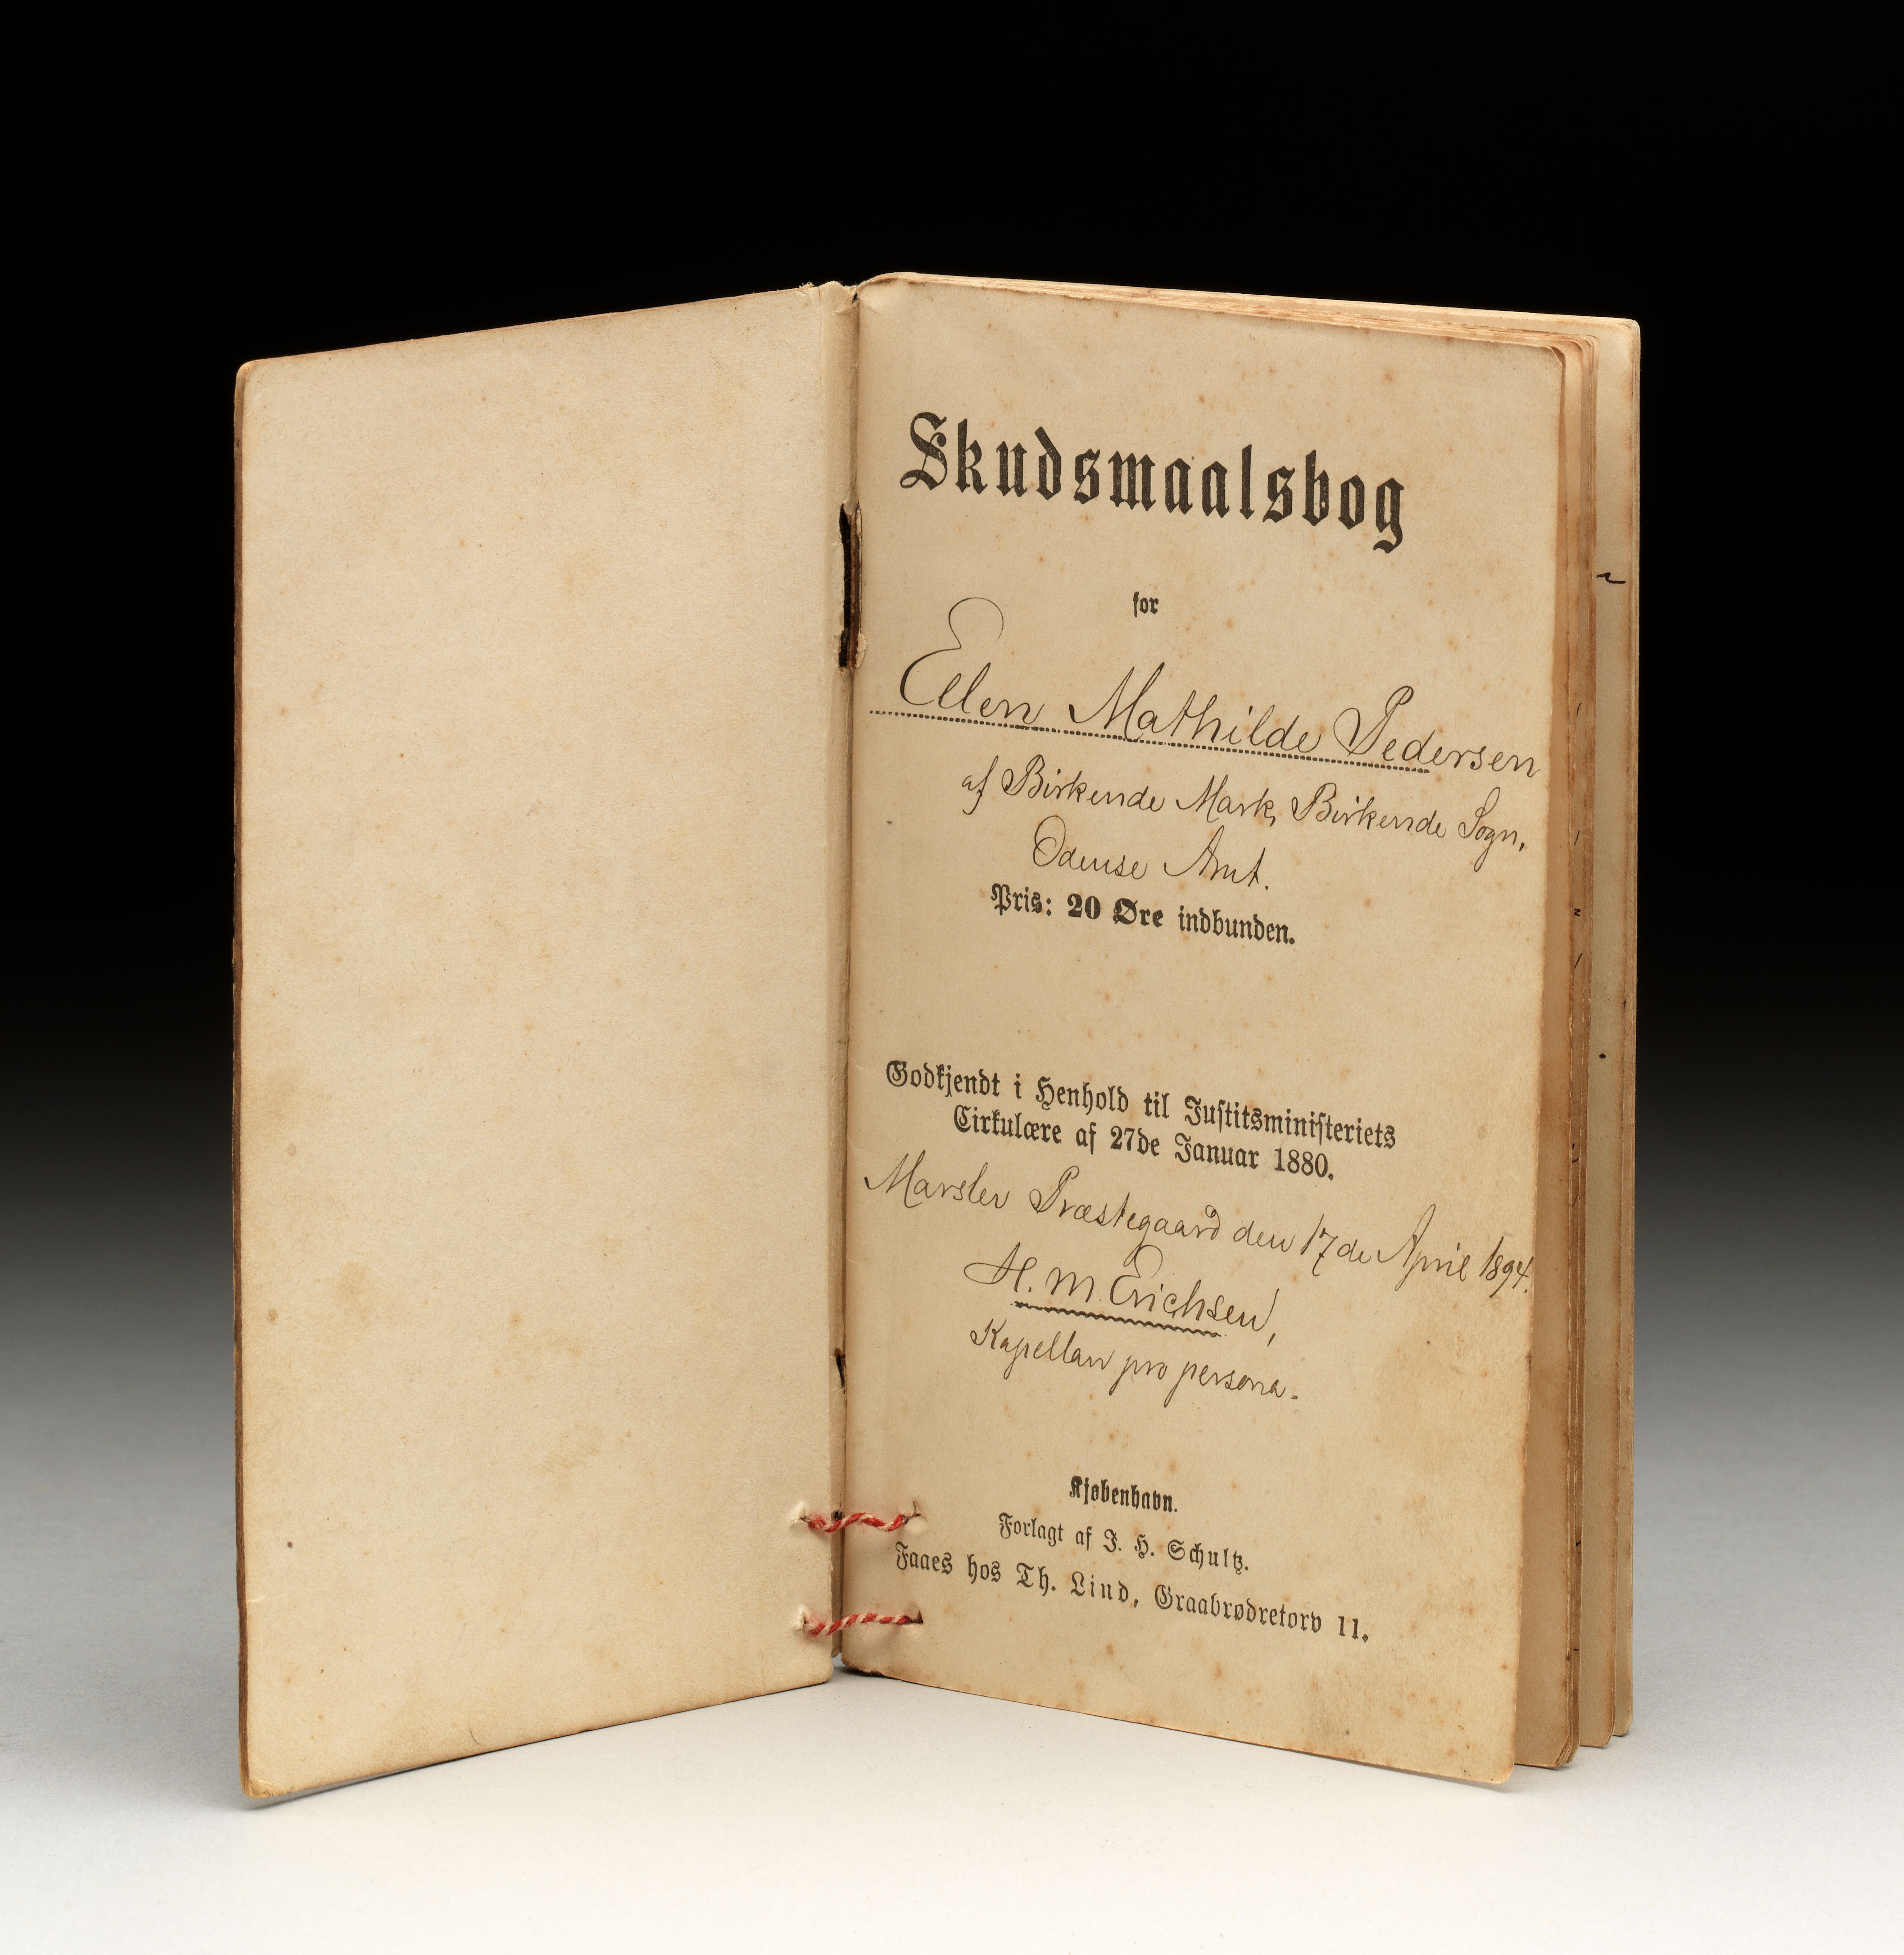 Skudsmaalsbog
for
Ellen Mathilde Pedersen
af Birkende Mark, Birkende Sogn,
Odense Amt.
Pris: 20 Øre indbunden.
Godkjendt i Henhold til Justitsministeriets
Cirkulære af 27de Januar 1880.
Marslev Præstegaard den 17de April 1894.
H. M. Erichsen,
Kapellan pro persona.
Kjøbenhavn.
Forlagt af J. H. Schultz.
Faaes hos Th. Lind, Graabrødretorv 11.